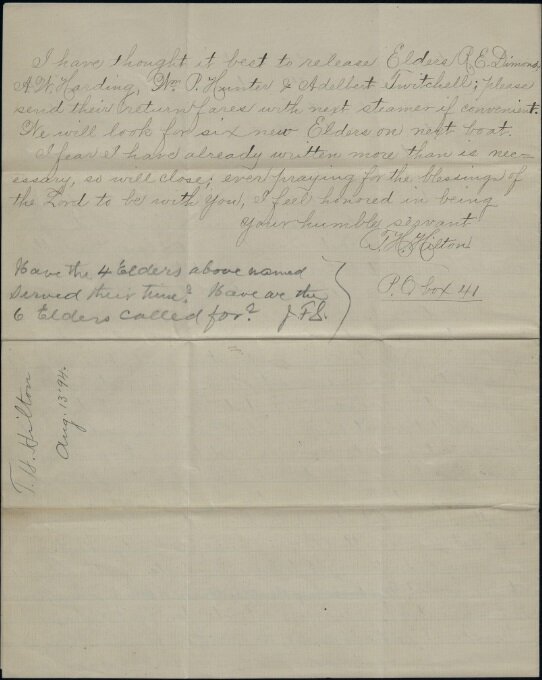 I have thought it best to release Elders R. E. Dimond,
A. W. Harding, Wm P. Hunter & Adelbert Twitchell; please
send their return fares with next steamer if convenient.
We will look for six new Elders on next boat.
I fear I have already written more than is nec=
essary, so will close; ever praying for the blessings of
the Lord to be with You, I feel honored in being
Your humble servant
T. H. Hilton
P.O box 41
Have the 4 Elders above named
served their time? Have we the
6 Elders called for? J. F. S.
T. H. Hilton
Aug. 13 '94.